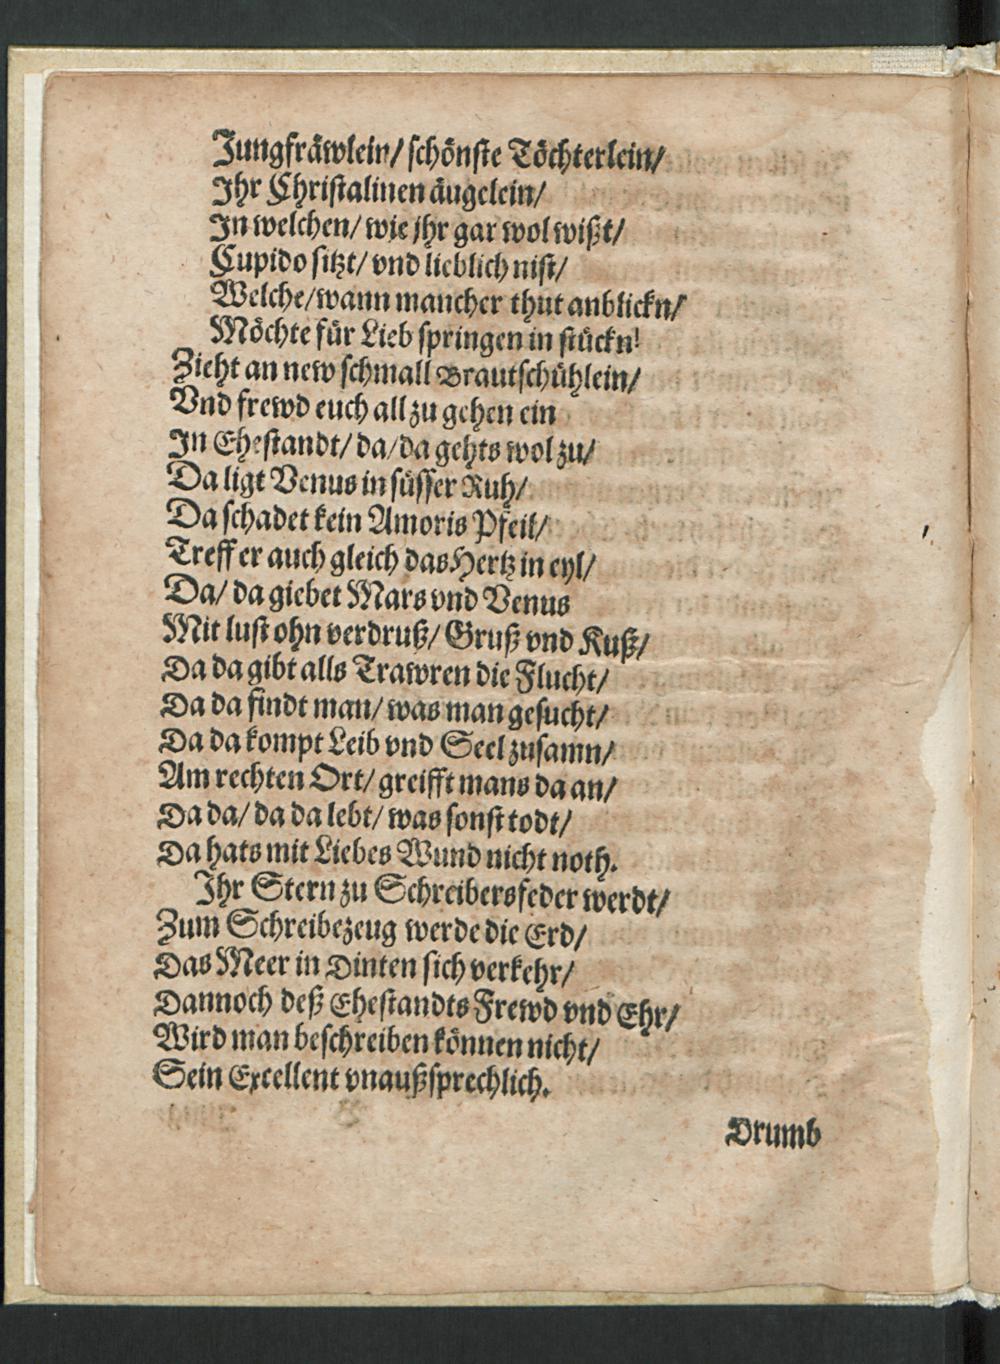 Jungfräwlein/ schönste Töchterlein/
Ihr Christalinen äugelein/
In welchen/ wie jhr gar wol wißt/
Cupido sitzt/ vnd lieblich nist/
Welche/ wann mancher thut anblickn/
Möchte für Lieb springen in stückn!
Zieht an new schmall Brautschühlein/
Vnd frewd euch all zu gehen ein
In Ehestandt/ da/ da gehts wol zu/
Da ligt Venus in süsser Ruh/
Da schadet kein Amoris Pfeil/
Treff er auch gleich das Hertz in eyl/
Da/ da giebet Mars vnd Venus
Mit lust ohn verdruß/ Gruß vnd Kuß/
Da da gibt alls Trawren die Flucht/
Da da findt man/ was man gesucht/
Da da kompt Leib vnd Seel zusamn/
Am rechten Ort/ greifft mans da an/
Da da/ da da lebt/ was sonst todt/
Da hats mit Liebes Wund nicht noth.
Ihr Stern zu Schreibersfeder werdt/
Zum Schreibezeug werde die Erd/
Das Meer in Dinten sich verkehr/
Dannoch deß Ehestandts Frewd vnd Ehr/
Wird man beschreiben können nicht/
Sein Excellent vnaußsprechlich.
Drumb